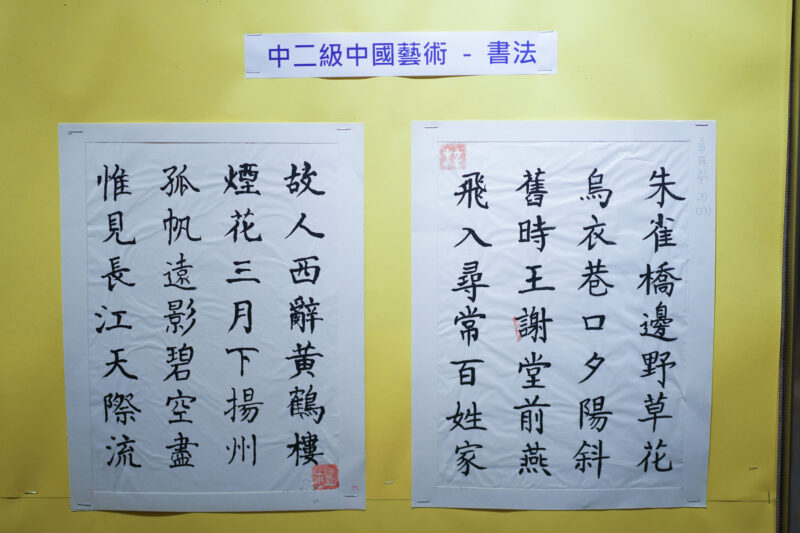 中二級中國藝術 - 書法
故人西辭黃鶴樓
煙花三月下揚州
孤帆遠影碧空盡
惟見長江天際流
朱雀橋邊野草花
烏衣巷口夕陽斜
舊時王謝堂前燕
飛入尋常百姓家